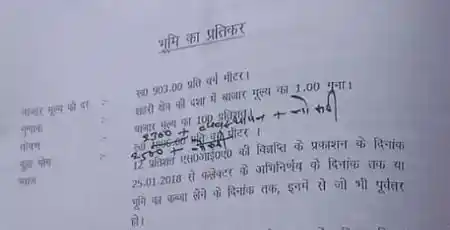 भूमि का प्रतिकर
बाजार मूल्य की दर :- रू0 903.00 प्रति वर्ग मीटर।
गुणांक :- शहरी क्षेत्र की दशा में बाजार मूल्य का 1.00 गुना।
तोषण :- बाजार मूल्य का 100 प्रतिशत।
2700 +
कुल योग :- रू0 1806.00 प्रति वर्ग मीटर ।
2500 +
ब्याज 12 प्रतिशत एस0आई0ए0 की विज्ञप्ति के प्रकाशन के दिनांक
25.01.2018 से कलेक्टर के अभिनिर्णय के दिनांक तक या
भूमि का कब्जा लेने के दिनांक तक, इनमें से जो भी पूर्वतर
हो।